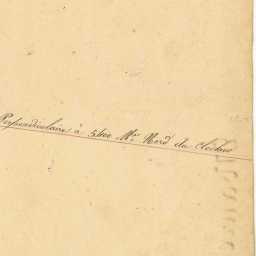 Perpendiculaire à 5400 Mes Nord du Clocher